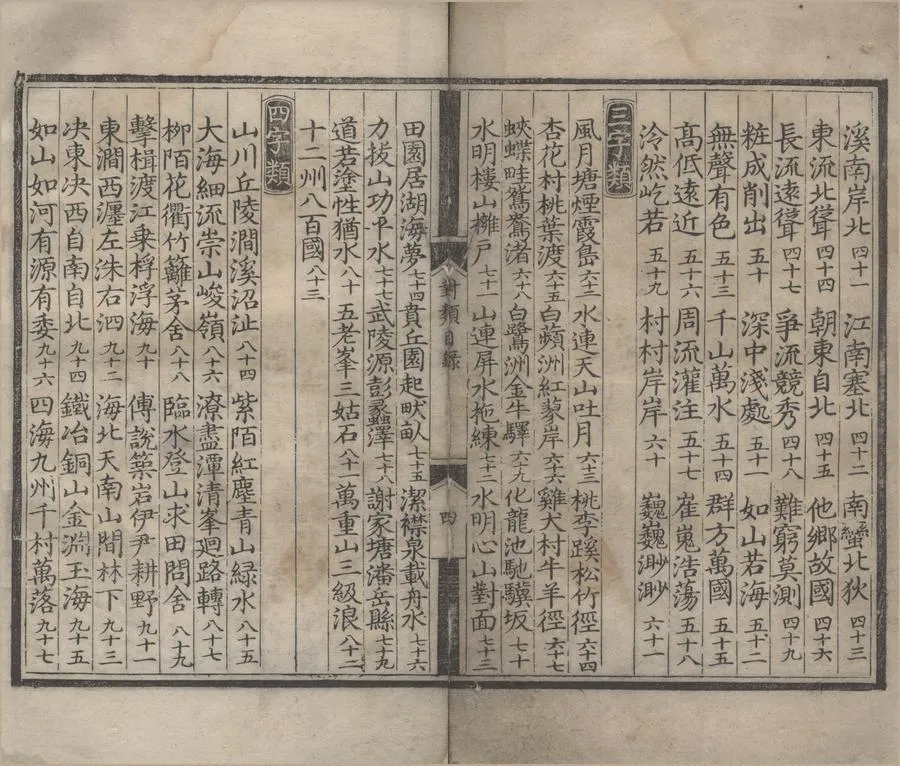 溪南岸北四十一 江南塞北四十二 南蠻北狄四十三
東流北聳四十四 朝東自北四十五 他鄉故國四十六
長流遠聳四十七 爭流競秀四十八 難窮莫測四十九
粧成削出五十 深中淺處五十一 如山若海五十二
無聲有色五十三 千山萬水五十四 群方萬國五十五
高低遠近五十六 周流灌注五十七 崔嵬浩蕩五十八
泠然屹若五十九 村村岸岸六十 巍巍渺渺六十一
三字類
風月塘煙霞島六十二 水連天山吐月六十三 桃李蹊松竹徑六十四
杏花村桃葉渡六十五 白蘋洲紅蓼岸六十六 雞犬村牛羊徑六十七
蛺蝶畦鴛鴦渚六十八 白鷺洲金牛驛六十九 化龍池馳驥坂七十
水明樓山擁戶七十一 山連屏水拖練七十二 水明心山對面七十三
對類目錄 四
田園居湖海夢七十四 賁丘園起畎畝七十五 潔襟泉載舟水七十六
力拔山功平水七十七 武陵源彭蠡澤七十八 謝家塘潘岳縣七十九
道若塗性猶水八十 五老峯三姑石八十一 萬重山三級浪八十二
十二州八百國八十三
四字類
山川丘陵澗溪沼沚八十四 紫陌紅塵青山綠水八十五
大海細流崇山峻嶺八十六 潦盡潭清峯迴路轉八十七
柳陌花衢竹籬茅舍八十八 臨水登山求田問舍八十九
擊楫渡江乗桴浮海九十 傅說築岩伊尹耕野九十一
東澗西瀍左洙右泗九十二 海北天南山間林下九十三
决東决西自南自北九十四 鐵冶銅山金淵玉海九十五
如山如河有源有委九十六 四海九州千村萬落九十七